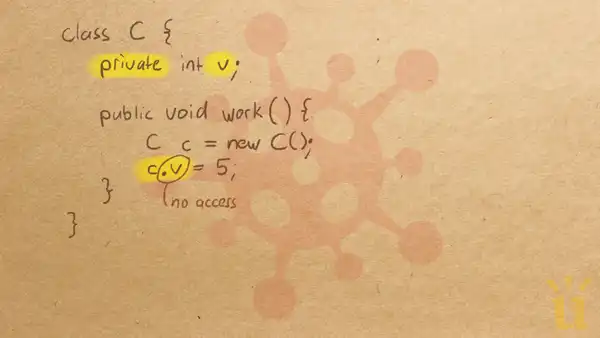 class C {
private int v;
public void work() {
C c = new C();
c.v = 5;
}
no access
}